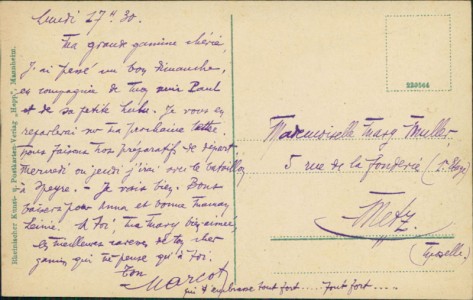 Lundi 17 30.
Ma grande gamine chérie,
J'ai passé un bon dimanche,
en compagnie de mon ami Paul
et de sa petite Lulu. Je vous en
reparlerai sur ma prochaine lettre.
Nous faisons nos préparatifs de départ.
Mercredi ou jeudi j'irai avec le bataillon
à Speyre. - Je vais bien. Bons
baisers pour Anna et bonne maman
A toi, ma Mary bien aimée
les meilleures caresses de ton cher
gamin, qui ne pense qu'à toi.
Ton
Marcot
qui t'embrasse tout fort.... Tout fort.....
Rheinischer Kunst- u. Postkarten-Verlag „Hepp", Mannheim.
Mademoiselle Mary Muller
5 rue de la Fonderie
Metz.
(Moselle)